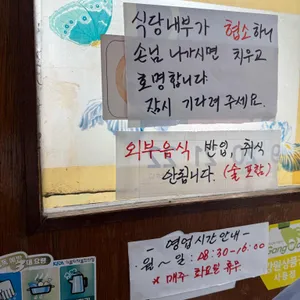 식당내부가 협소하니
손님 나가시면 치우고
호명합니다
잠시 기다려 주세요.
외부음식 반입, 취식
안됩니다. (술 포함)
- 영업시간안내 -
월 ~ 일 : 08:30~16:00
※ 매주 화요일 휴무